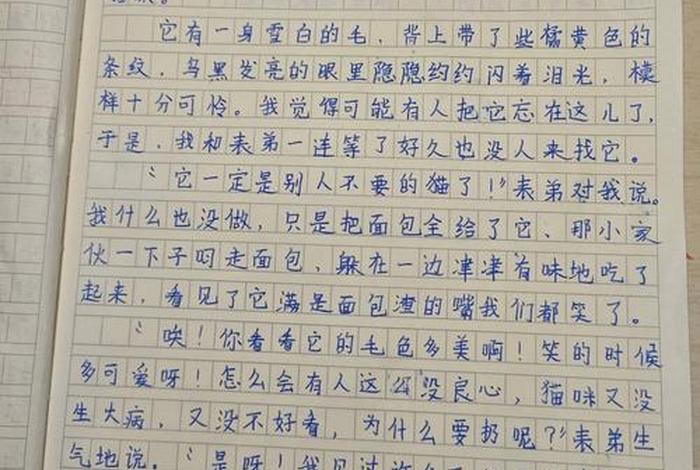 它有一身雪白的毛，背上带了些橘黄色的
条纹，乌黑发亮的眼里隐隐约约闪着泪光，模
样十分可怜。我觉得可能有人把它忘在这儿了，
于是，我和表弟一连等了好久也没人来找它。
“它一定是别人不要的猫了！”表弟对我说。
我什么也没做，只是把面包全给了它、那小家
伙一下子叼走面包，躲在一边津津有味地吃了
起来，看见了它满是面包渣的嘴我们都笑了。
“唉！你看看它的毛色多美啊！笑的时候
多可爱呀！怎么会有人这么没良心，猫咪又没
生大病，又没不好看，为什么要扔呢？”表弟生
气地说。“是呀！我见过